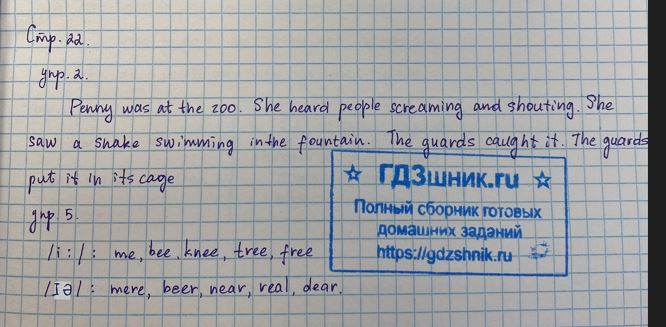 Стр. 22.
упр. 2.
Penny was at the zoo. She heard people screaming and shouting. She
saw a snake swimming in the fountain. The guards caught it. The guards
put it in its cage
упр. 5.
/i:/: me, bee, knee, tree, free
/Iə/: mere, beer, near, real, dear.
ГДЗшник.ru
Полный сборник готовых
домашних заданий
https://gdzshnik.ru